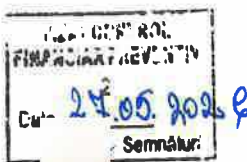 CONTROL
FINANCIAR PREVENTIV
Data 27.05.202
Semnături